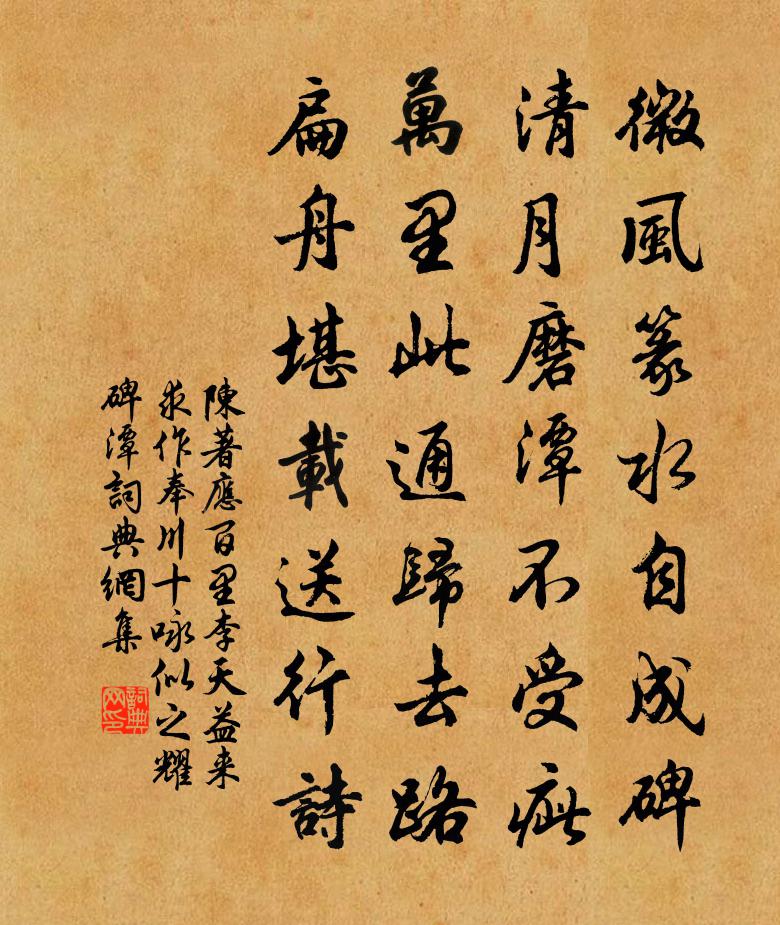 微風篆水自成碑
清月磨潭不受疵
萬里此通歸去路
扁舟堪載送行詩
陳著應百里李天益来
求作奉川十咏似之耀
碑潭詞典網集
詞典网印